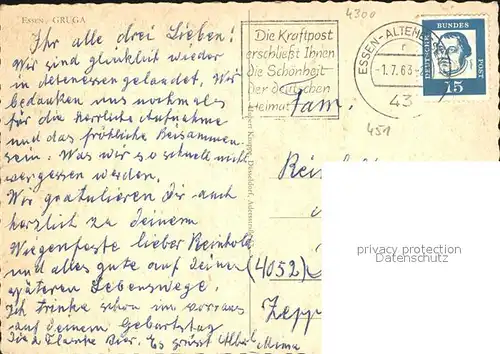 Essen, GRUGA
Ihr alle drei Lieben!
Wir sind glücklich wieder
in Altenessen gelandet. Wir
bedanken uns nochmals
für die herrliche Aufnahme
und das fröhliche Beisammen-
sein. Was wir so schnell nicht
vergessen werden.
Wir gratulieren Dir auch
herzlich zu deinem
Wiegenfeste lieber Reinhold
und alles gute auf Deinem
späteren Lebenswege.
Ich trinke schon im vorraus
auf deinem Geburtstag
Bier. Es grüsst
4300
Die Kraftpost
erschließt Ihnen
die Schönheit
der deutschen
Heimat
ESSEN-ALTENE
-1.7.63
43
DEUTSCHE
BUNDES
POST
15
451
Fam.
(4052)
Zepp
privacy protection
Datenschutz